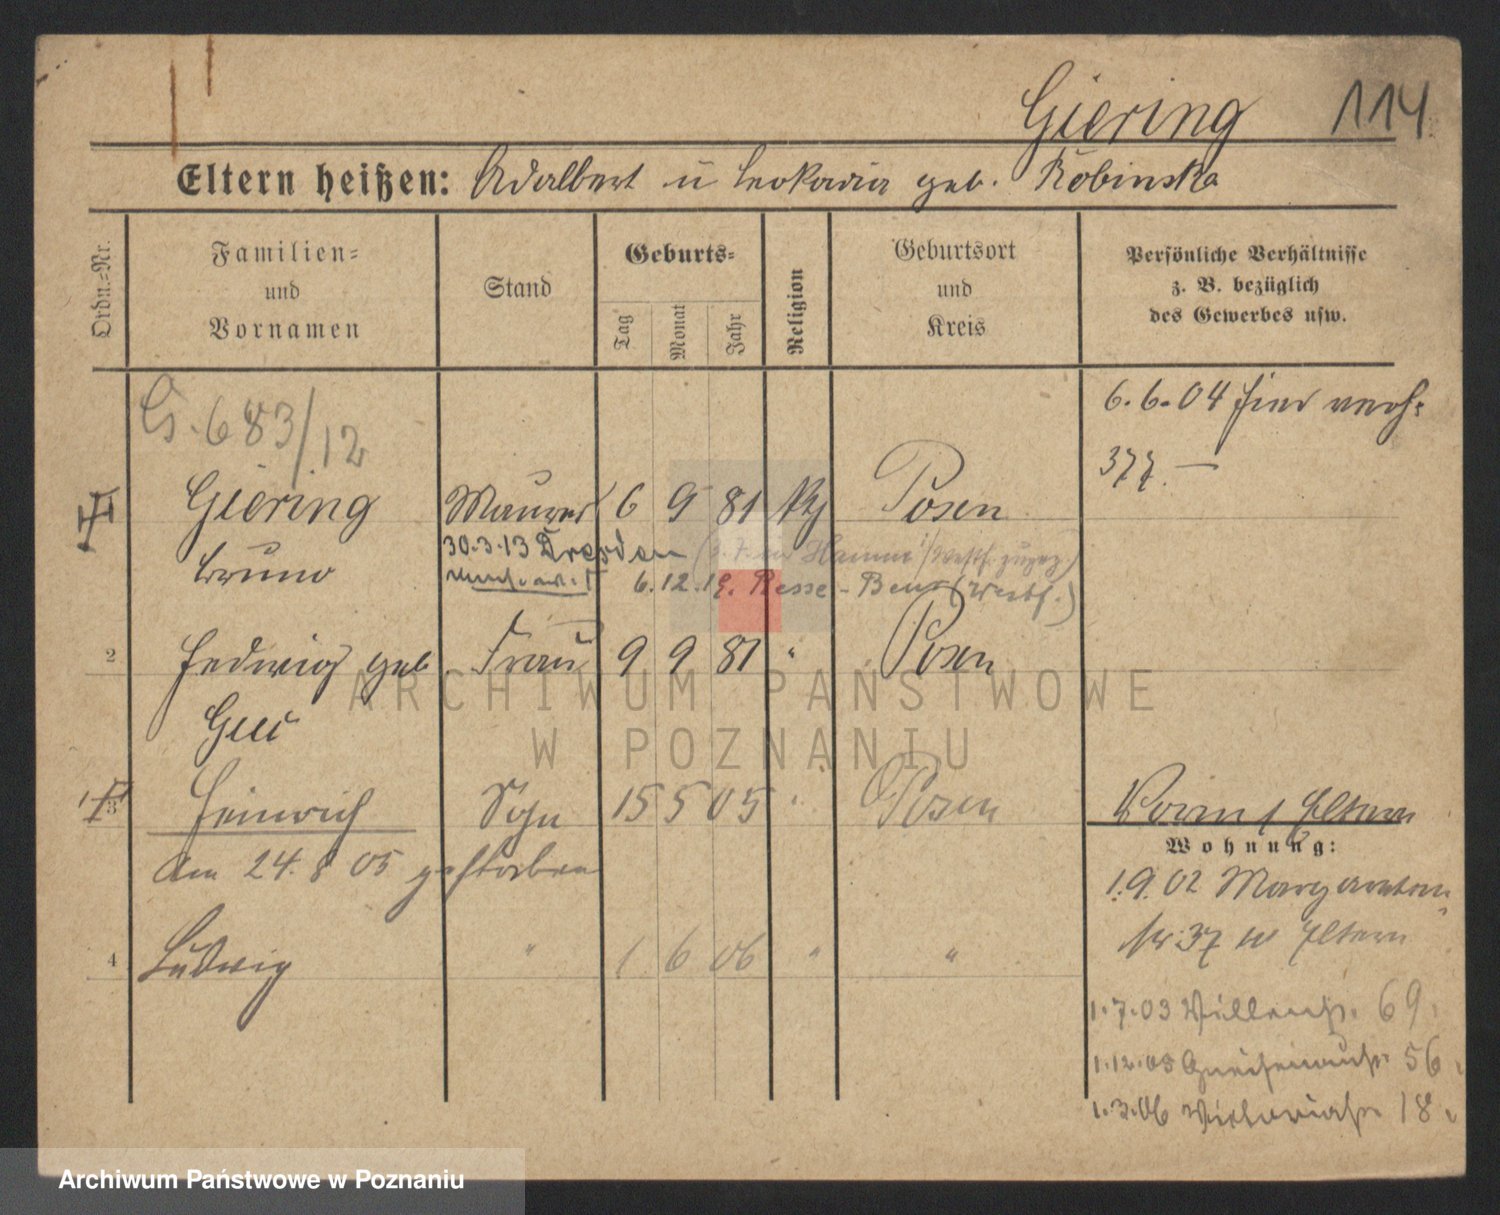 Giering 114
Eltern heißen: Adalbert u Leokadia geb. Robinska
Ordn.-Nr.
Familien-
und
Vornamen
Stand
Geburts-
Tag
Monat
Jahr
Religion
Geburtsort
und
Kreis
Persönliche Verhältnisse
z. B. bezüglich
des Gewerbes usw.
G. 683/12
6.6.04 hier verh:
377. —
Giering Maurer 6 9 81 Posen
Bruno 30.3.13 Dresden
6.12.19. Resse-
2 Hedwig geb Frau 9 9 81 " Posen
3 Heinrich Sohn 15 5 05 " Posen
am 24.8 05 gestorben
4 Ludwig " 1 6 06 " "
Eltern
Wohnung:
1.9.02
37 Eltern
1.7.03 69.
1.12.05 Gneisenaustr 56.
1.3.06 Viktoriastr 18.
ARCHIWUM PAŃSTWOWE
W POZNANIU
Archiwum Państwowe w Poznaniu